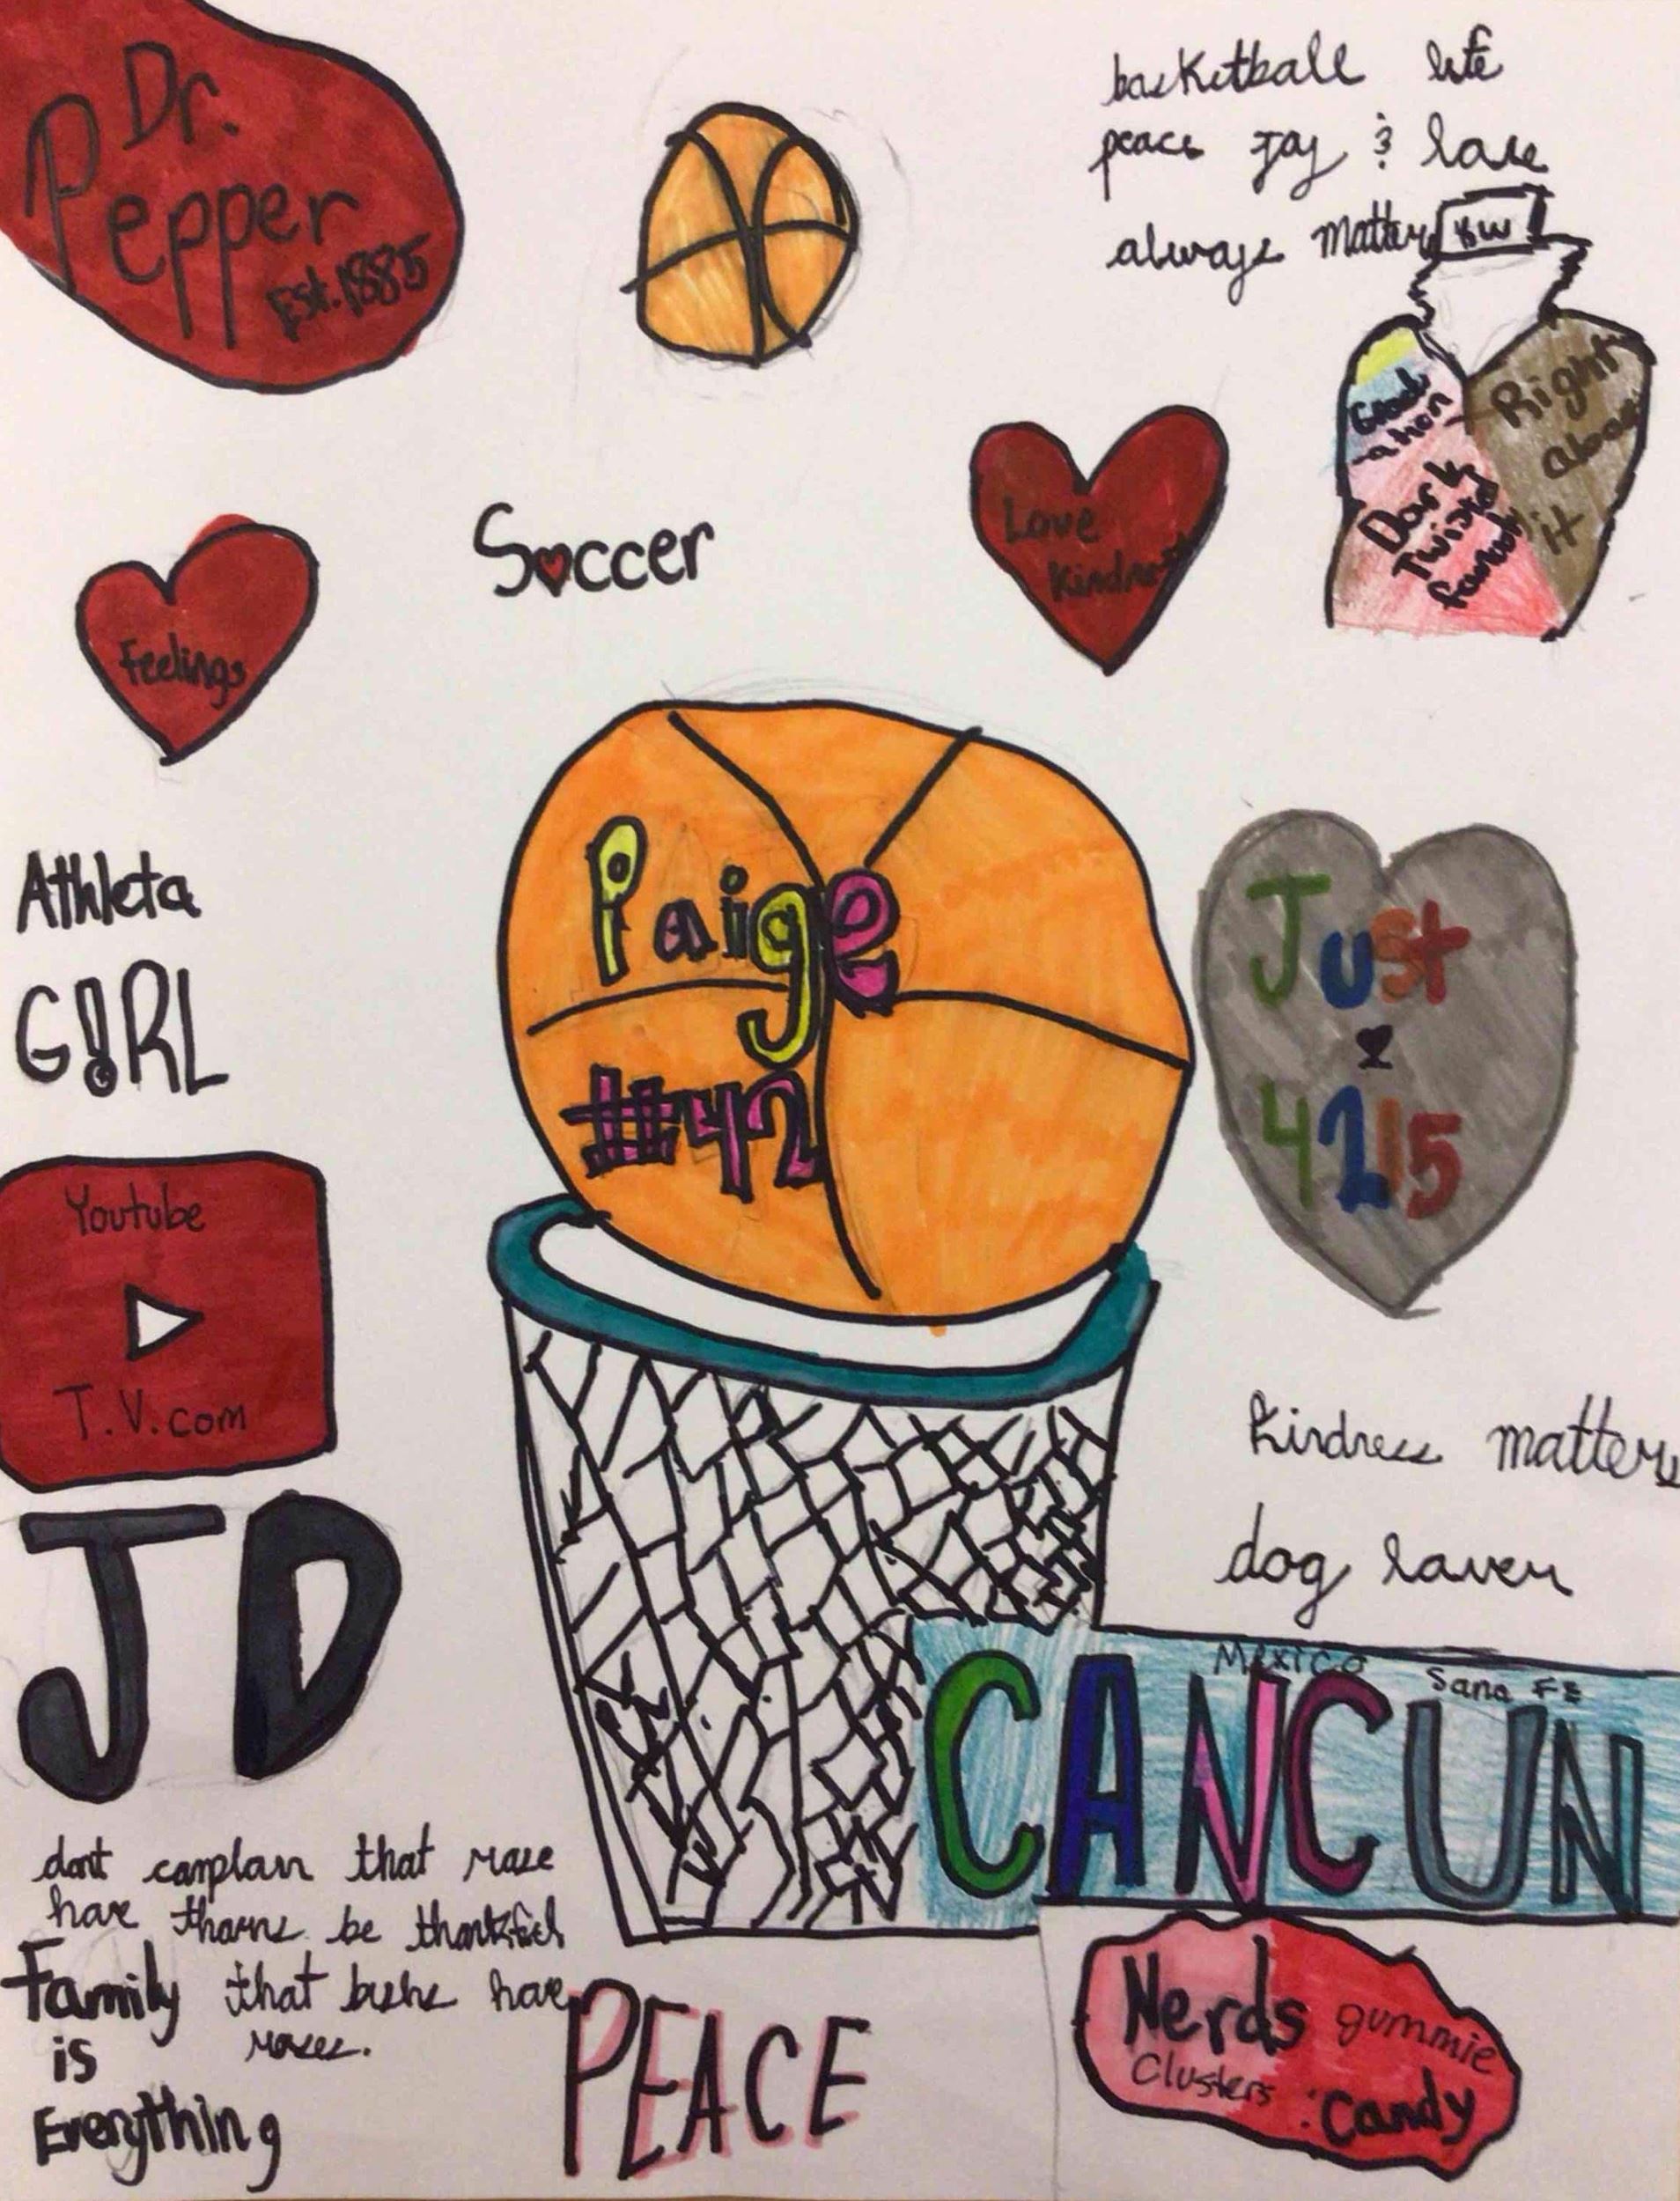 Dr.
Pepper
Est. 1885
basketball life
peace joy & love
always matter
BW
Right
above
it
Dark
Twisted
fantasy
Love
Kindness
Soccer
Feelings
Athleta
G!RL
Paige
#42
Just
4215
Youtube
T.V.com
JD
Kindness matters
dog lover
Mexico
Sana FE
CANCUN
dont complain that rose
have thorns be thankful
that bushs have
roses.
Family
is
Everything
PEACE
Nerds gummie
Clusters :Candy